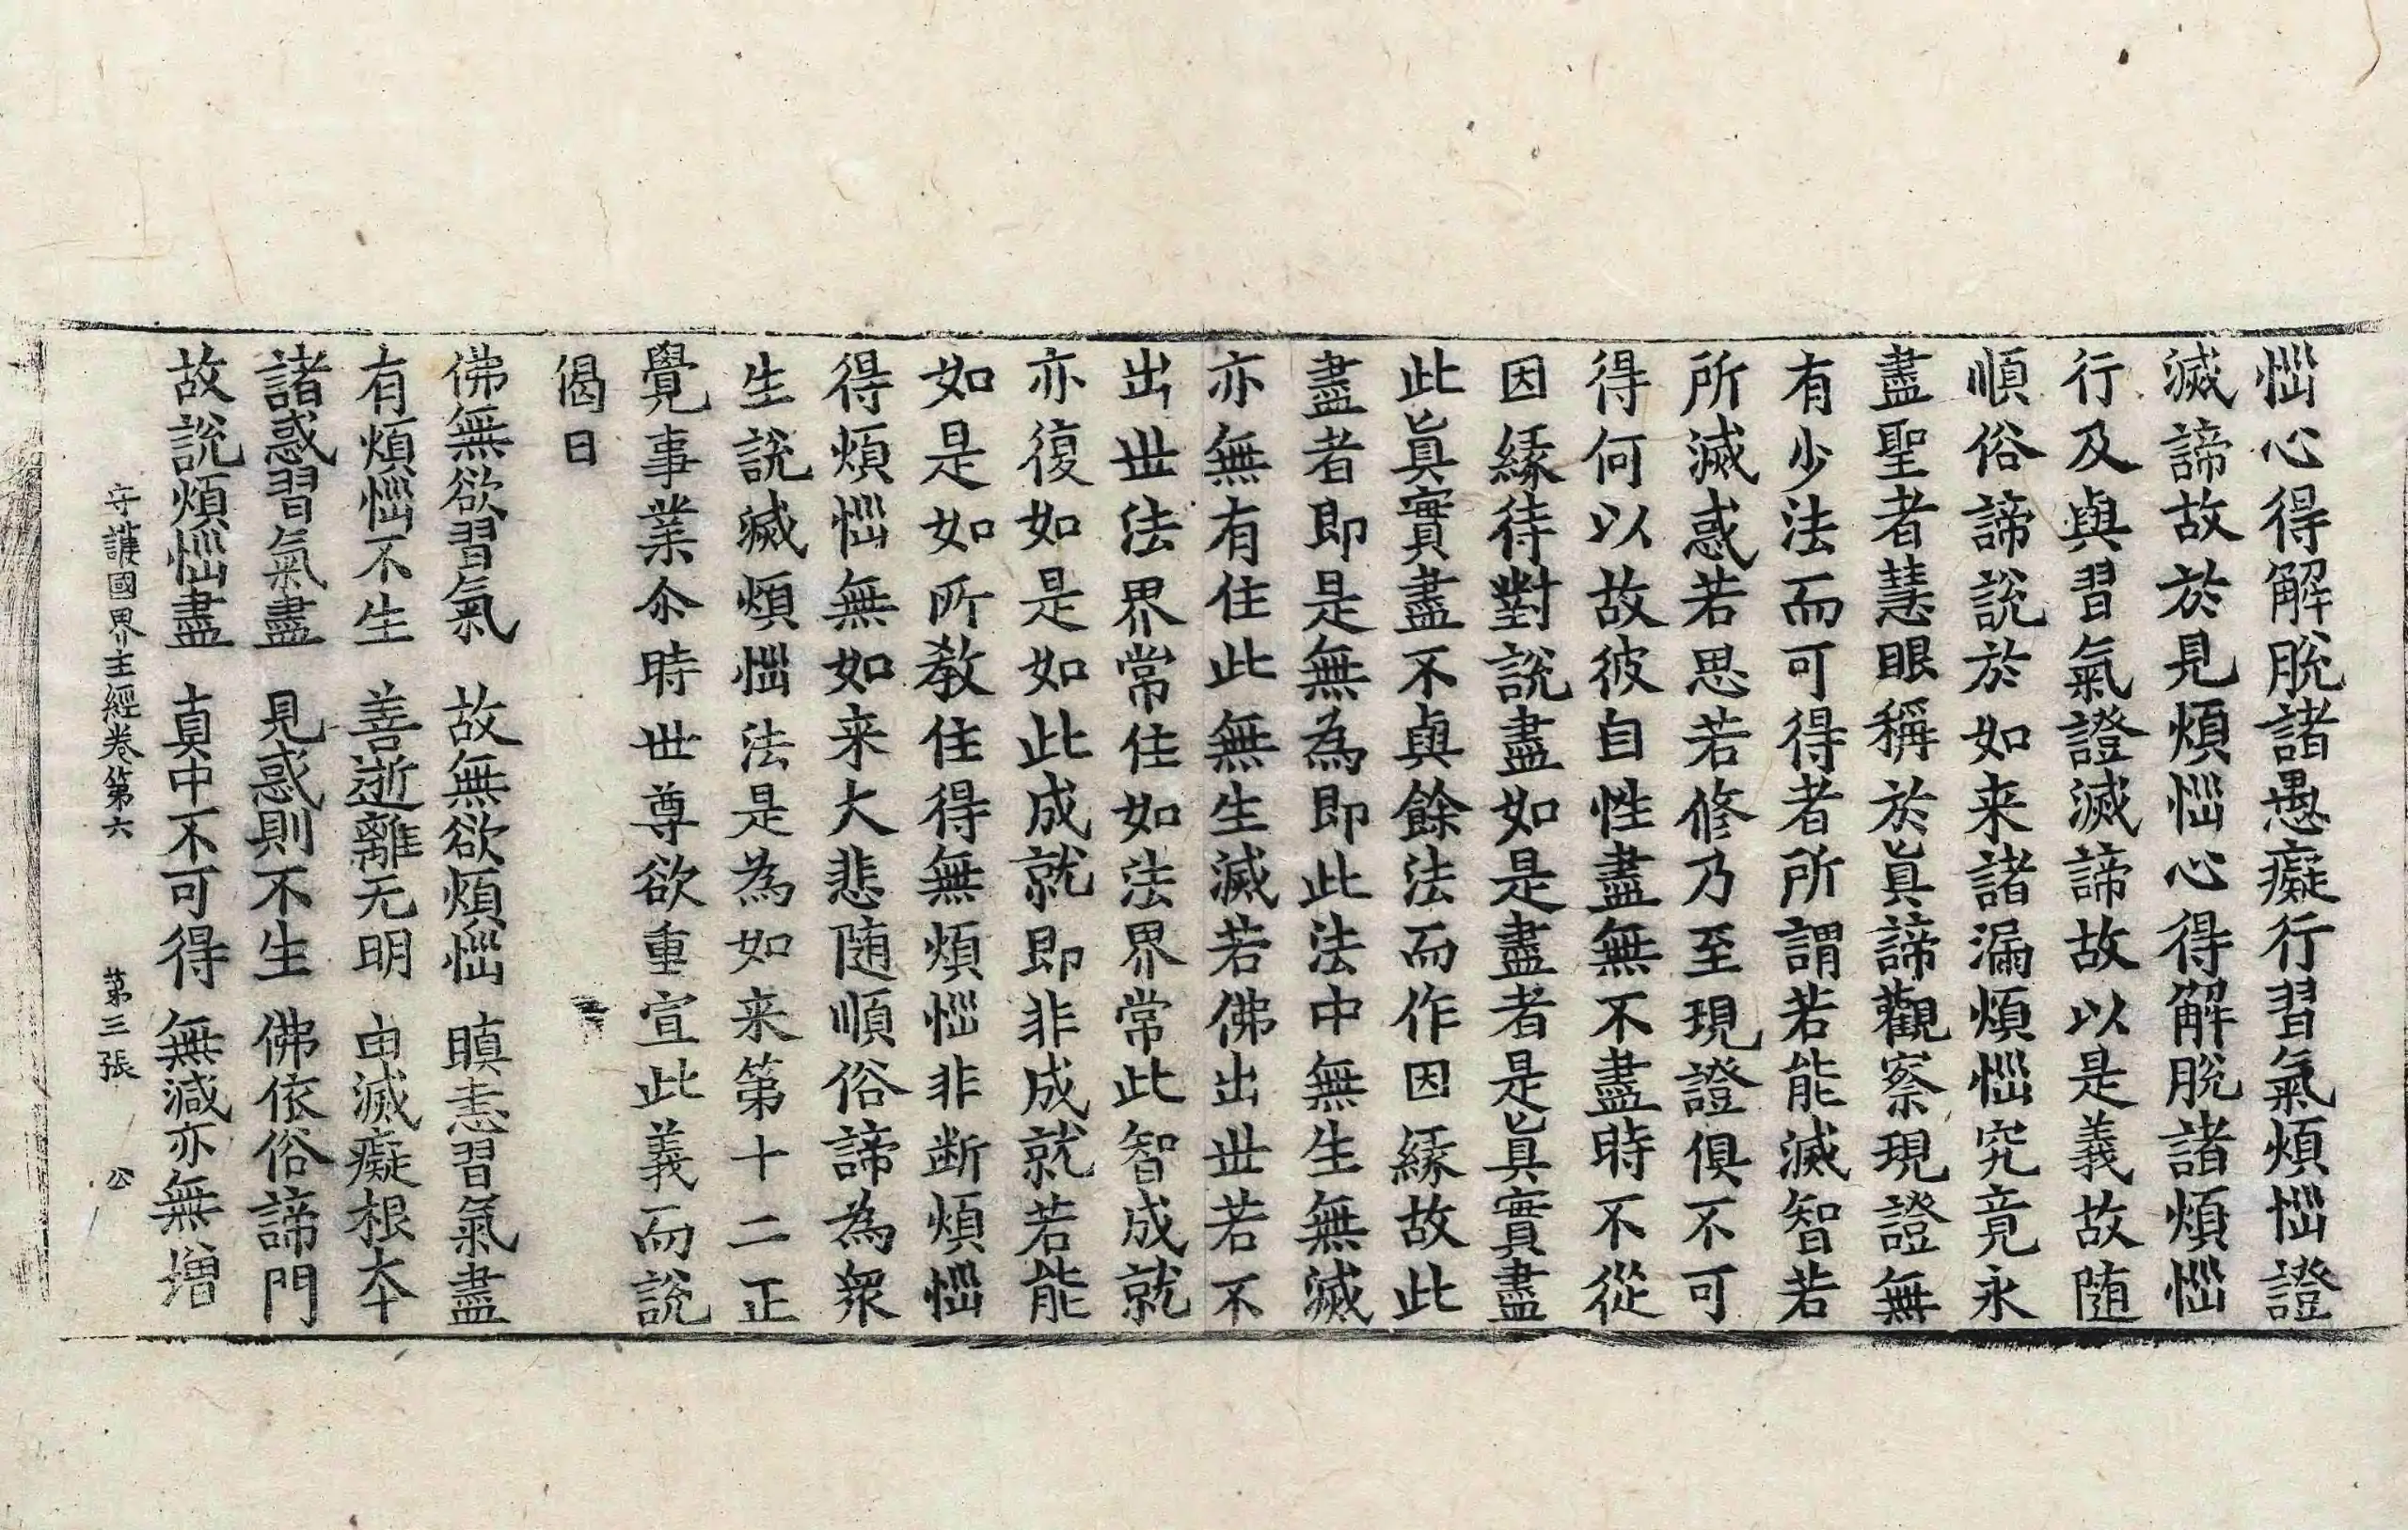 惱心得解脫諸愚癡行習氣煩惱證
滅諦故於見煩惱心得解脫諸煩惱
行及與習氣證滅諦故以是義故随
順俗諦說於如来諸漏煩惱究竟永
盡聖者慧眼稱於眞諦觀察現證無
有少法而可得者所謂若能滅智若
所滅惑若思若修乃至現證俱不可
得何以故彼自性盡無不盡時不從
因緣待對說盡如是盡者是眞實盡
此眞實盡不與餘法而作因緣故此
盡者即是無為即此法中無生無滅
亦無有住此無生滅若佛出世若不
出世法界常住如法界常此智成就
亦復如是如此成就即非成就若能
如是如所教住得無煩惱非断煩惱
得煩惱無如来大悲随順俗諦為衆
生說滅煩惱法是為如来第十二正
覺事業尒時世尊欲重宣此義而說
偈曰
佛無欲習氣　故無欲煩惱　瞋恚習氣盡
有煩惱不生　善逝離无明　由滅癡根本
諸惑習氣盡　見惑則不生　佛依俗諦門
故說煩惱盡　真中不可得　無減亦無增
守護國界主經卷第六　第三張　公